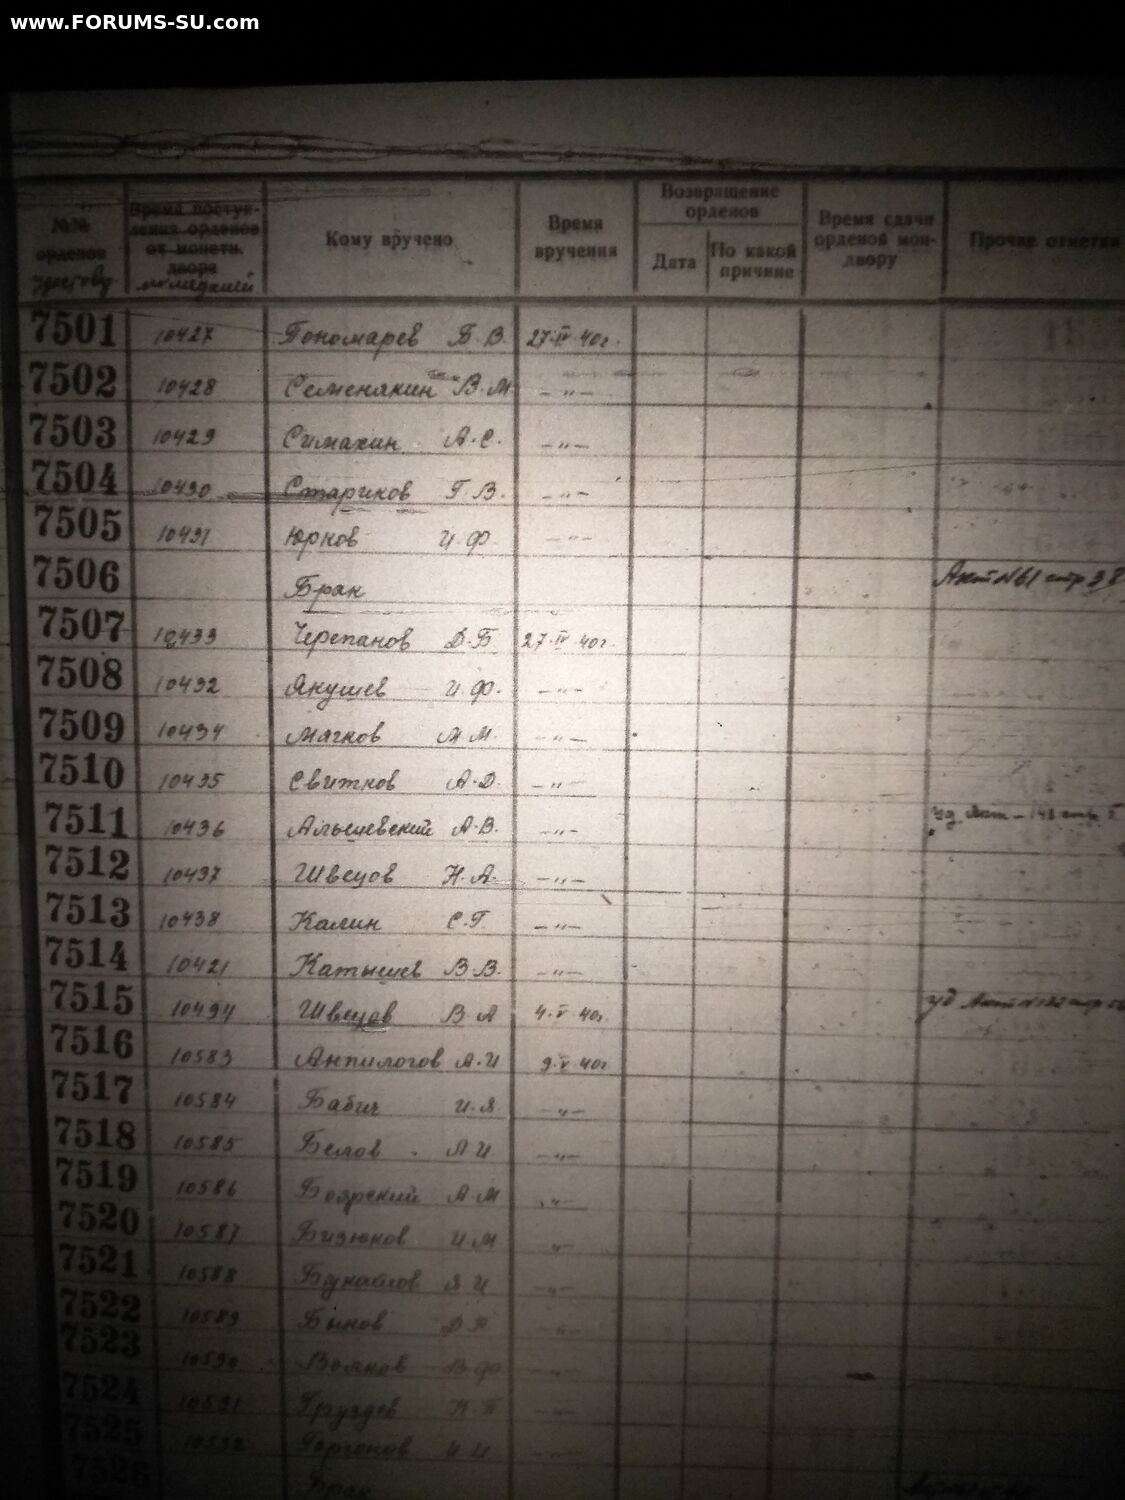 www.FORUMS-SU.com
№№ орденов удостовер
Время поступления орденов от монетн. двора №№ медалей
Кому вручено
Время вручения
Возвращение орденов
Дата
По какой причине
Время сдачи орденой мон-двору
Прочие отметки
7501 10427 Пономарев Б. В. 27·IV 40г.
7502 10428 Семенякин В. М — „ —
7503 10429 Симакин А. С. — „ —
7504 10430 Стариков Г. В. — „ —
7505 10431 Юрков И. Ф. — „ —
7506 Брак Акт № 61 стр 38
7507 10433 Черепанов Д. Б. 27·IV 40г.
7508 10432 Якушев И. Ф. — „ —
7509 10434 Мягков М. М. — „ —
7510 10435 Свитков А. Д. — „ —
7511 10436 А. В. — „ — уд. Акт – 148 стр.
7512 10437 Швецов Н. А. — „ —
7513 10438 Калин С. Г. — „ —
7514 10421 Катышев В. В. — „ —
7515 10494 Швецов В А 4·V 40г. уд Акт № стр
7516 10583 Анпилогов А. И 9·V 40г
7517 10584 Бабич И. Я — „ —
7518 10585 Белов И — „ —
7519 10586 Боярский А. М „ —
7520 10587 Бизюков И М „ —
7521 10588 И — „ —
7522 10589 Быков — „ —
7523 10590 Волков В. Ф — „ —
7524 10591 Груздев Н. — „ —
7525 10592 И — „ —
7526 Брак